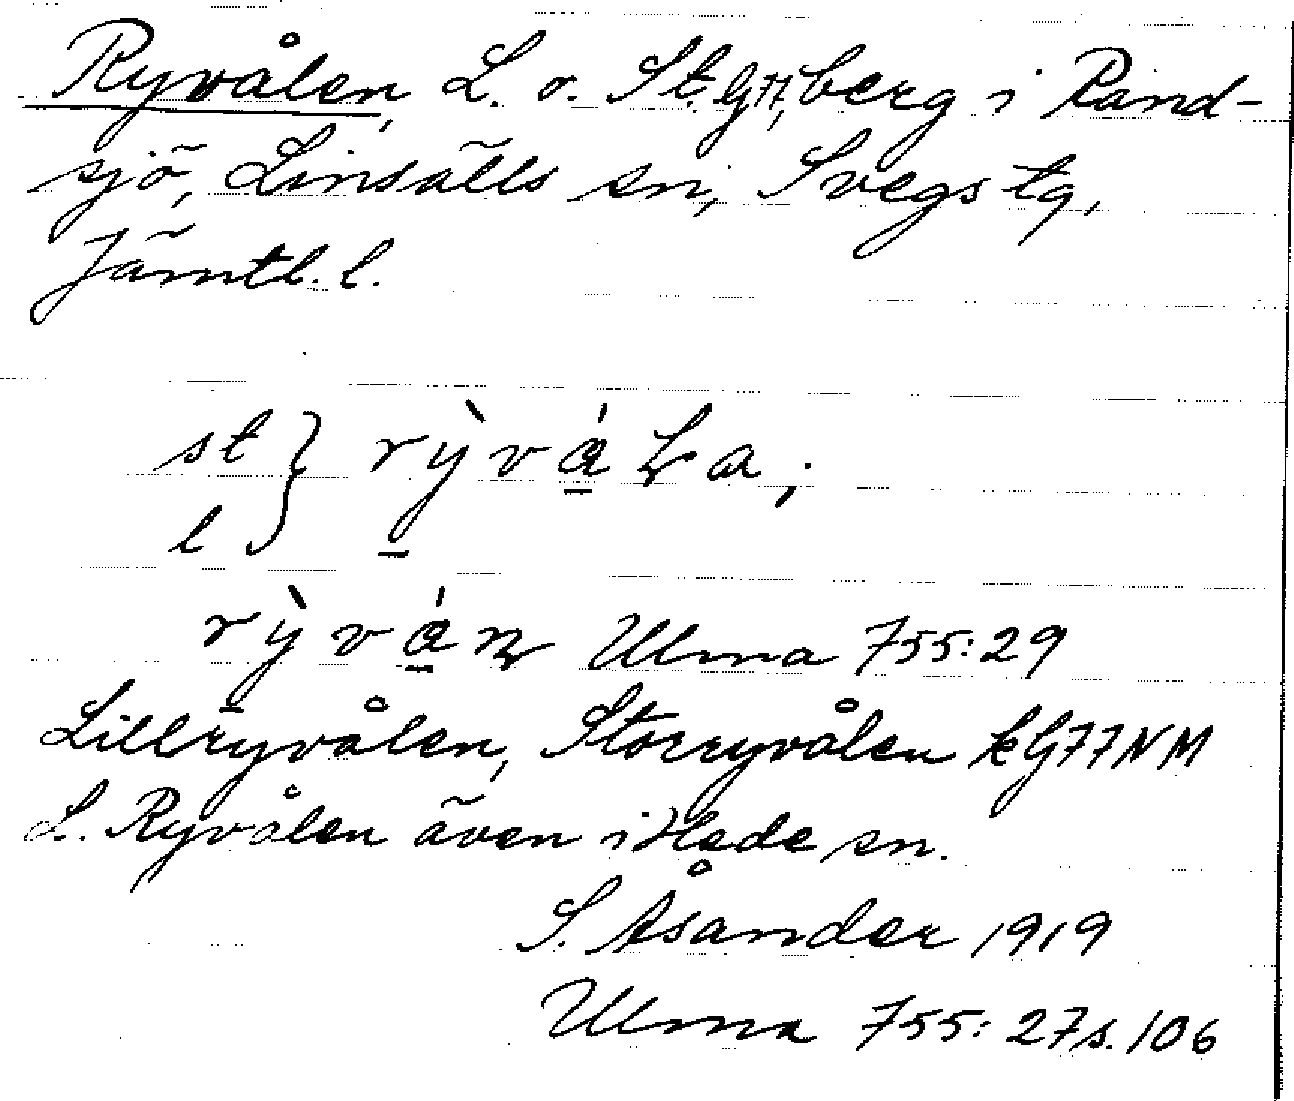 Ryvålen, L. o. St. G77, berg i Rand-
sjö, Linsälls sn, Svegs tg,
Jämtl. l.
st } rỳvála,
l
rỳván Ulma 755:29
Lillryvålen, Storryvålen kG77NM
L. Ryvålen även i Hede sn.
S. Åsander 1919
Ulma 755:27 s. 106